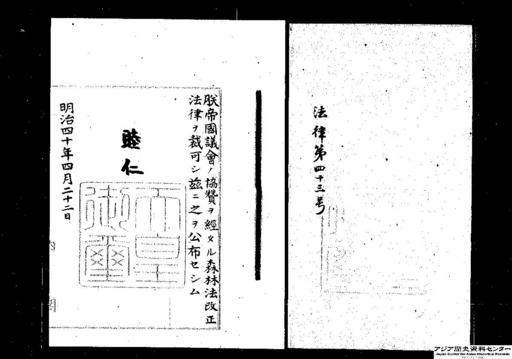 法律第四十三号
朕帝國議會ノ協賛ヲ經タル森林法改正
法律ヲ裁可シ茲ニ之ヲ公布セシム
睦仁
天皇
御璽
明治四十年四月二十二日
内閣
アジア歴史資料センター
Japan Center for Asian Historical Records